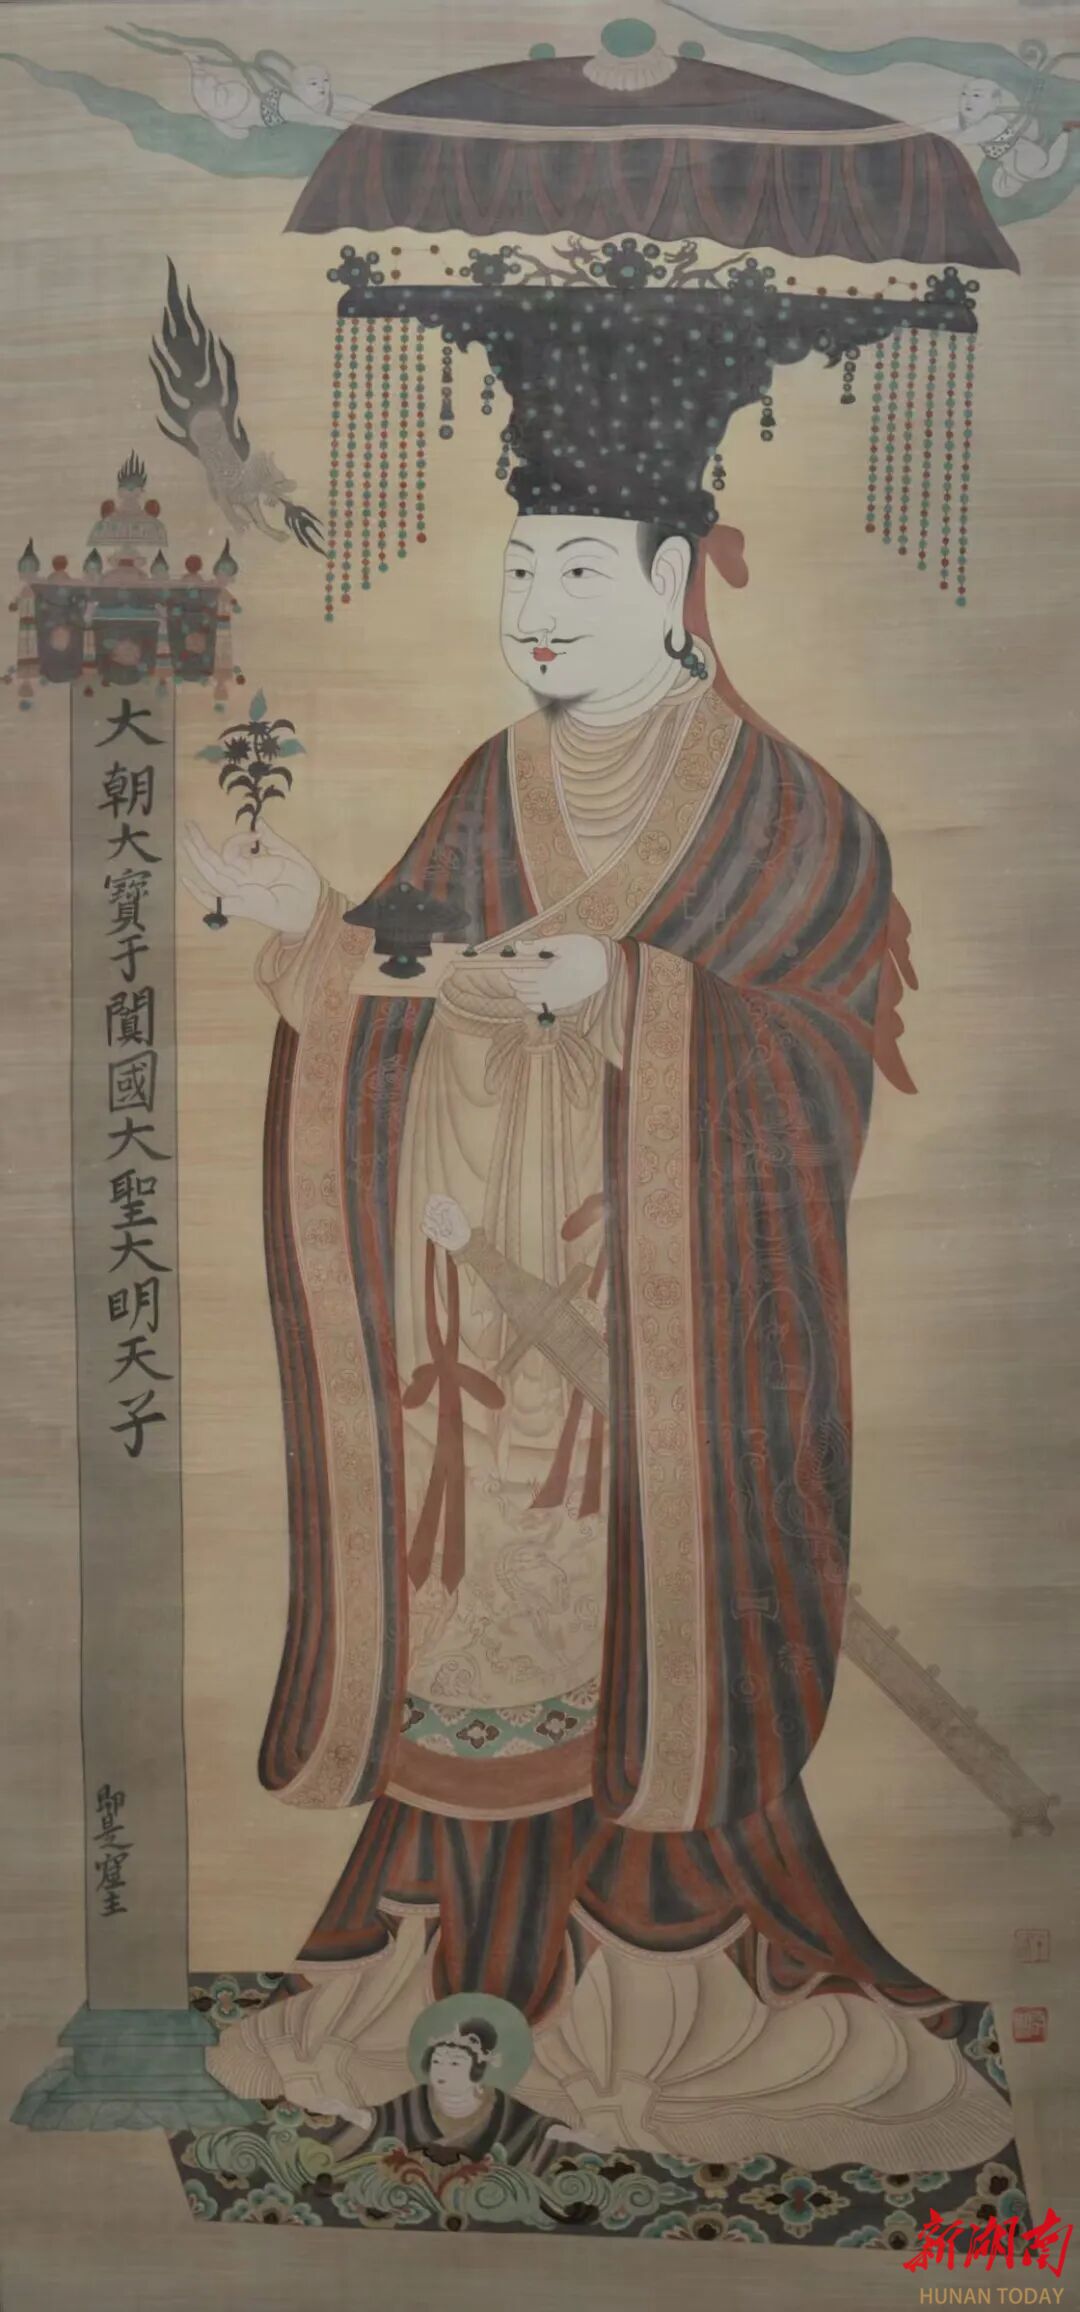 大朝大寶于闐國大聖大明天子
即是窟主
新湖南
HUNAN TODAY